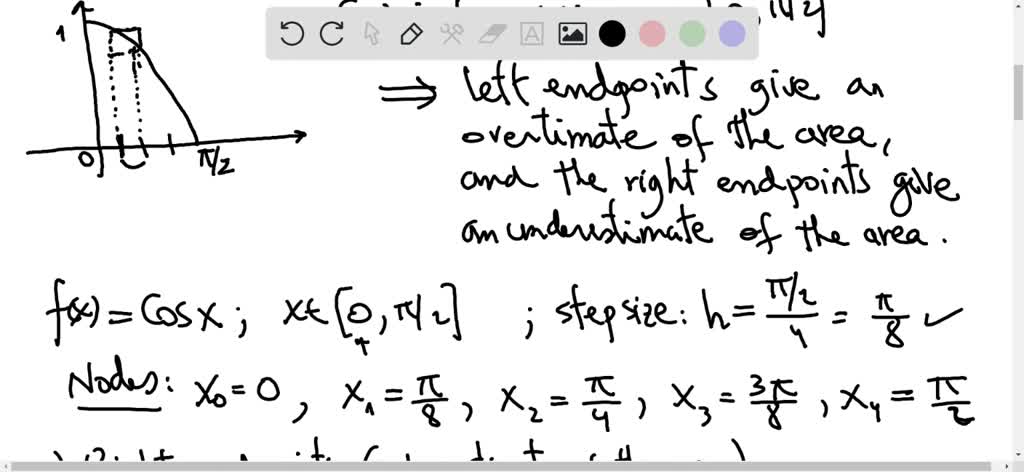 π/2]
1
0
π/2
⟹ left endpoints give an
overtimate of the area,
and the right endpoints give
an underestimate of the area.
f(x) = Cos x ; x ∈ [0, π/2] ; step size: h = (π/2)/4 = π/8 ✓
4
Nodes: x₀ = 0, x₁ = π/8, x₂ = π/4, x₃ = 3π/8, x₄ = π/2